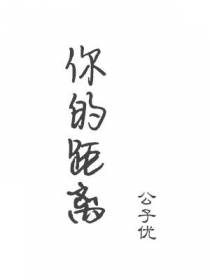 你的距离
公子优